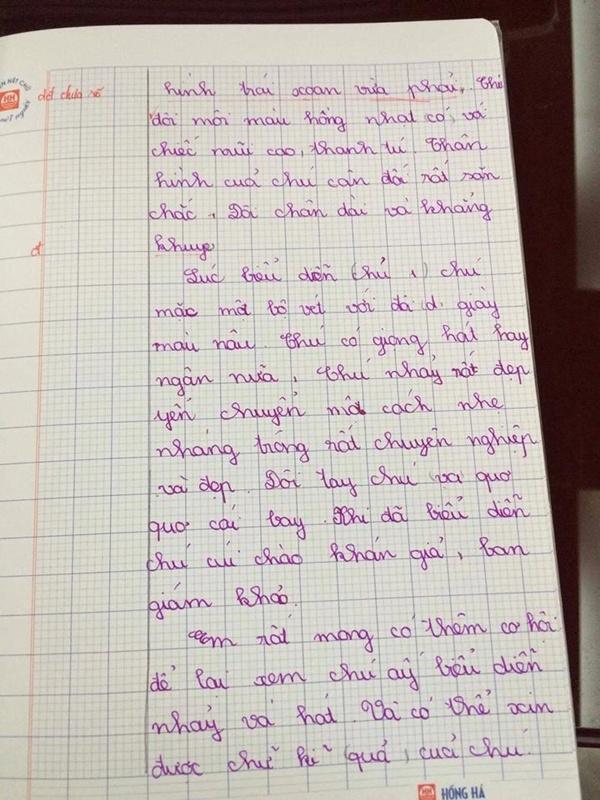 đdt chưa rõ
hình trái xoan vừa phải, Chú
đôi môi màu hồng nhạt có, với
chiếc mũi cao, thanh tú. Thân
hình cuả chú cân đối rất săn
chắc. Đôi chân dài và khảng
khuya
Lúc biểu diễn (chú,) chú
mặc một bộ vét với đôi giày
màu nâu. Chú có giọng hát hay
ngân nưa, Chú nhảy rất đẹp
yển chuyển một cách nhe
nhàng trông rất chuyên nghiệp
và đẹp. Đôi tay chú va quơ
quơ cái tay. Khi đã biểu diễn
chú cúi chào khán giả, ban
giám khảo.
Em rất mong có thêm cơ hội
để lại xem chú aý biểu diễn
nhảy và hát. Và có thể xin
được chữ kí (quả,) cuả chú.
HỒNG HÀ